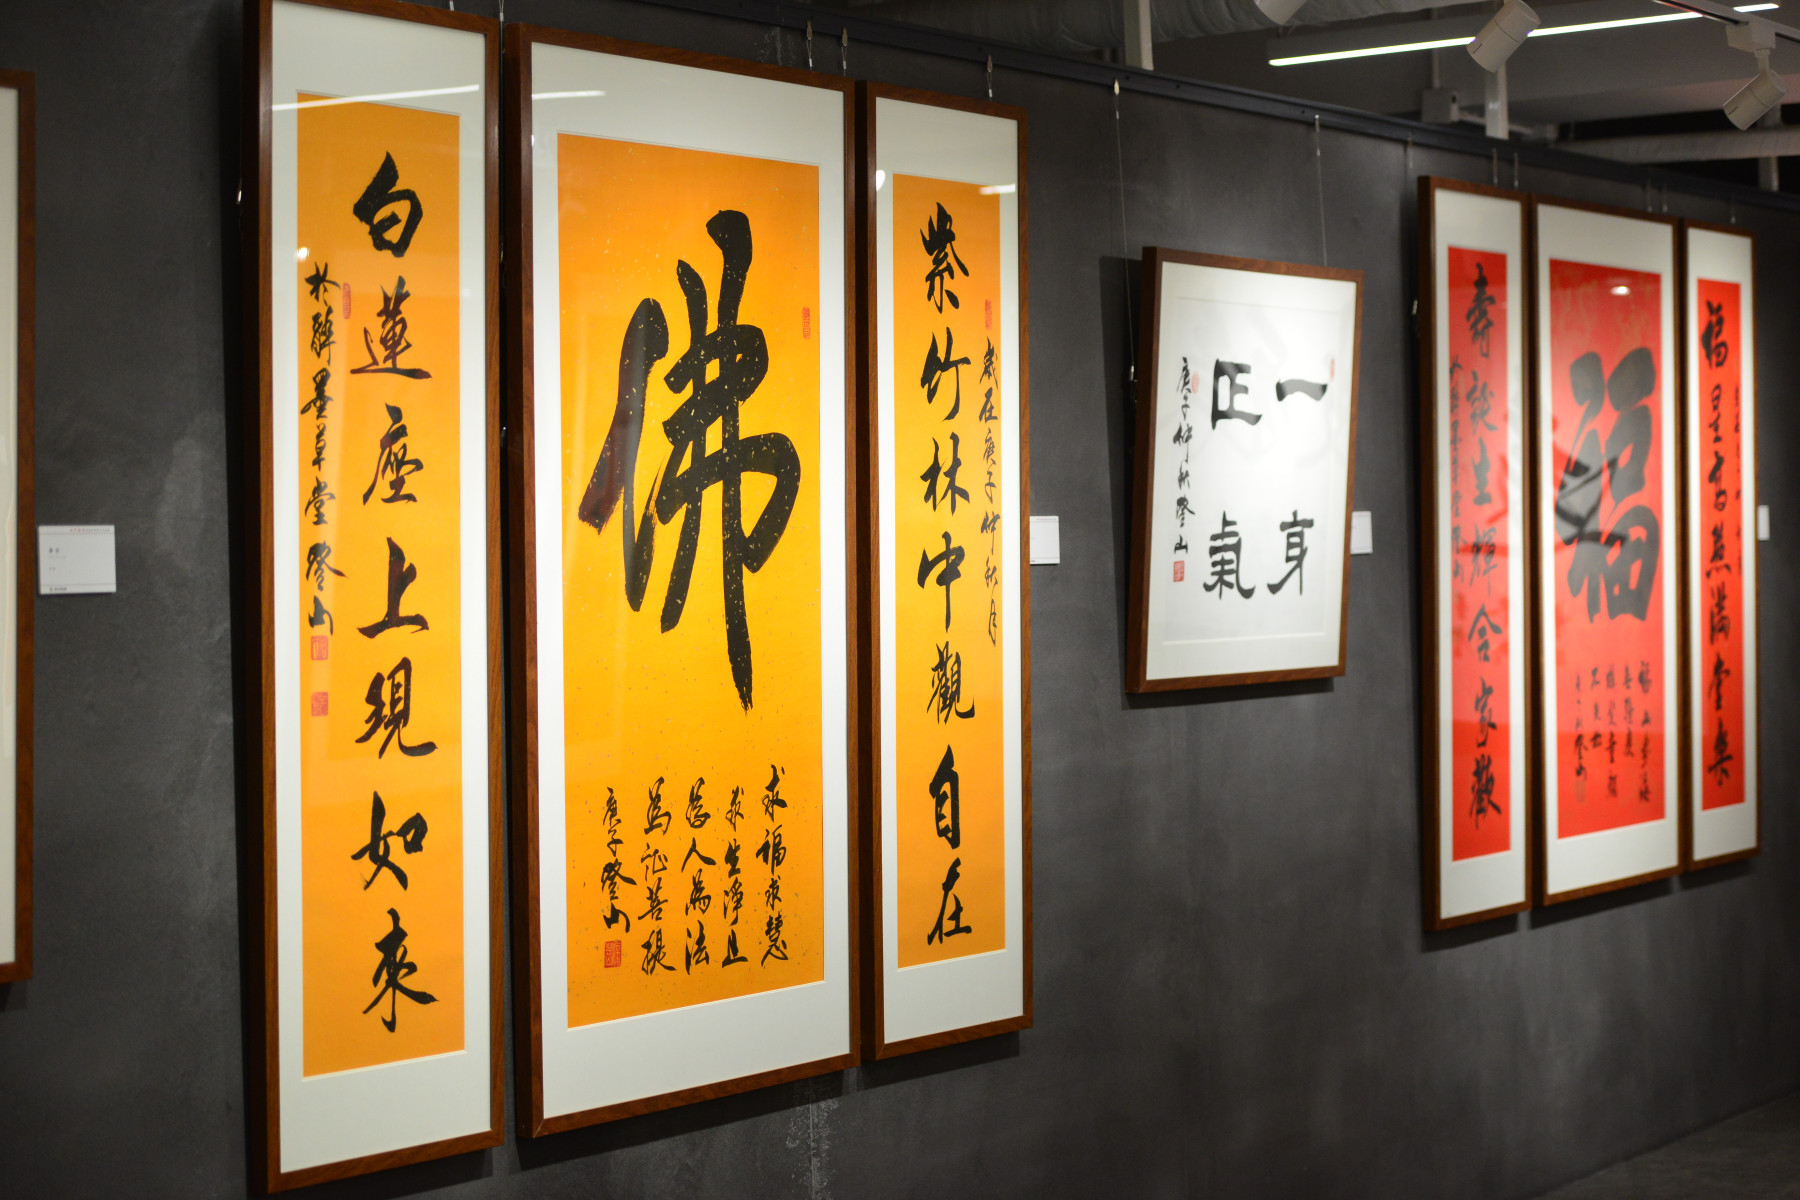 歲在庚子仲秋月
紫竹林中觀自在
佛
求福求慧
求生淨土
為人為法
為証菩提
庚子登山
白蓮座上現如來
於醉墨草堂登山
一身
正氣
庚子仲秋登山
福星高照滿堂樂
福
壽誕生輝合家歡